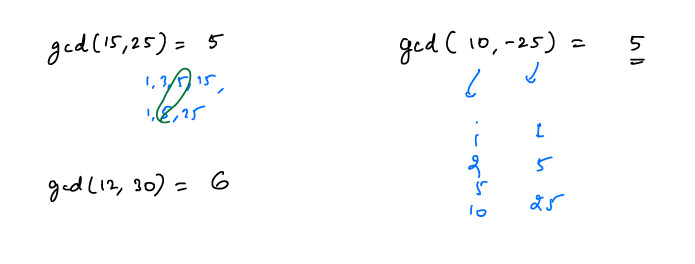 gcd(15,25) = 5
1, 3, 5, 15,
1, 5, 25
gcd(12, 30) = 6
gcd( 10, -25) = 5
1 1
2 5
5
10 25